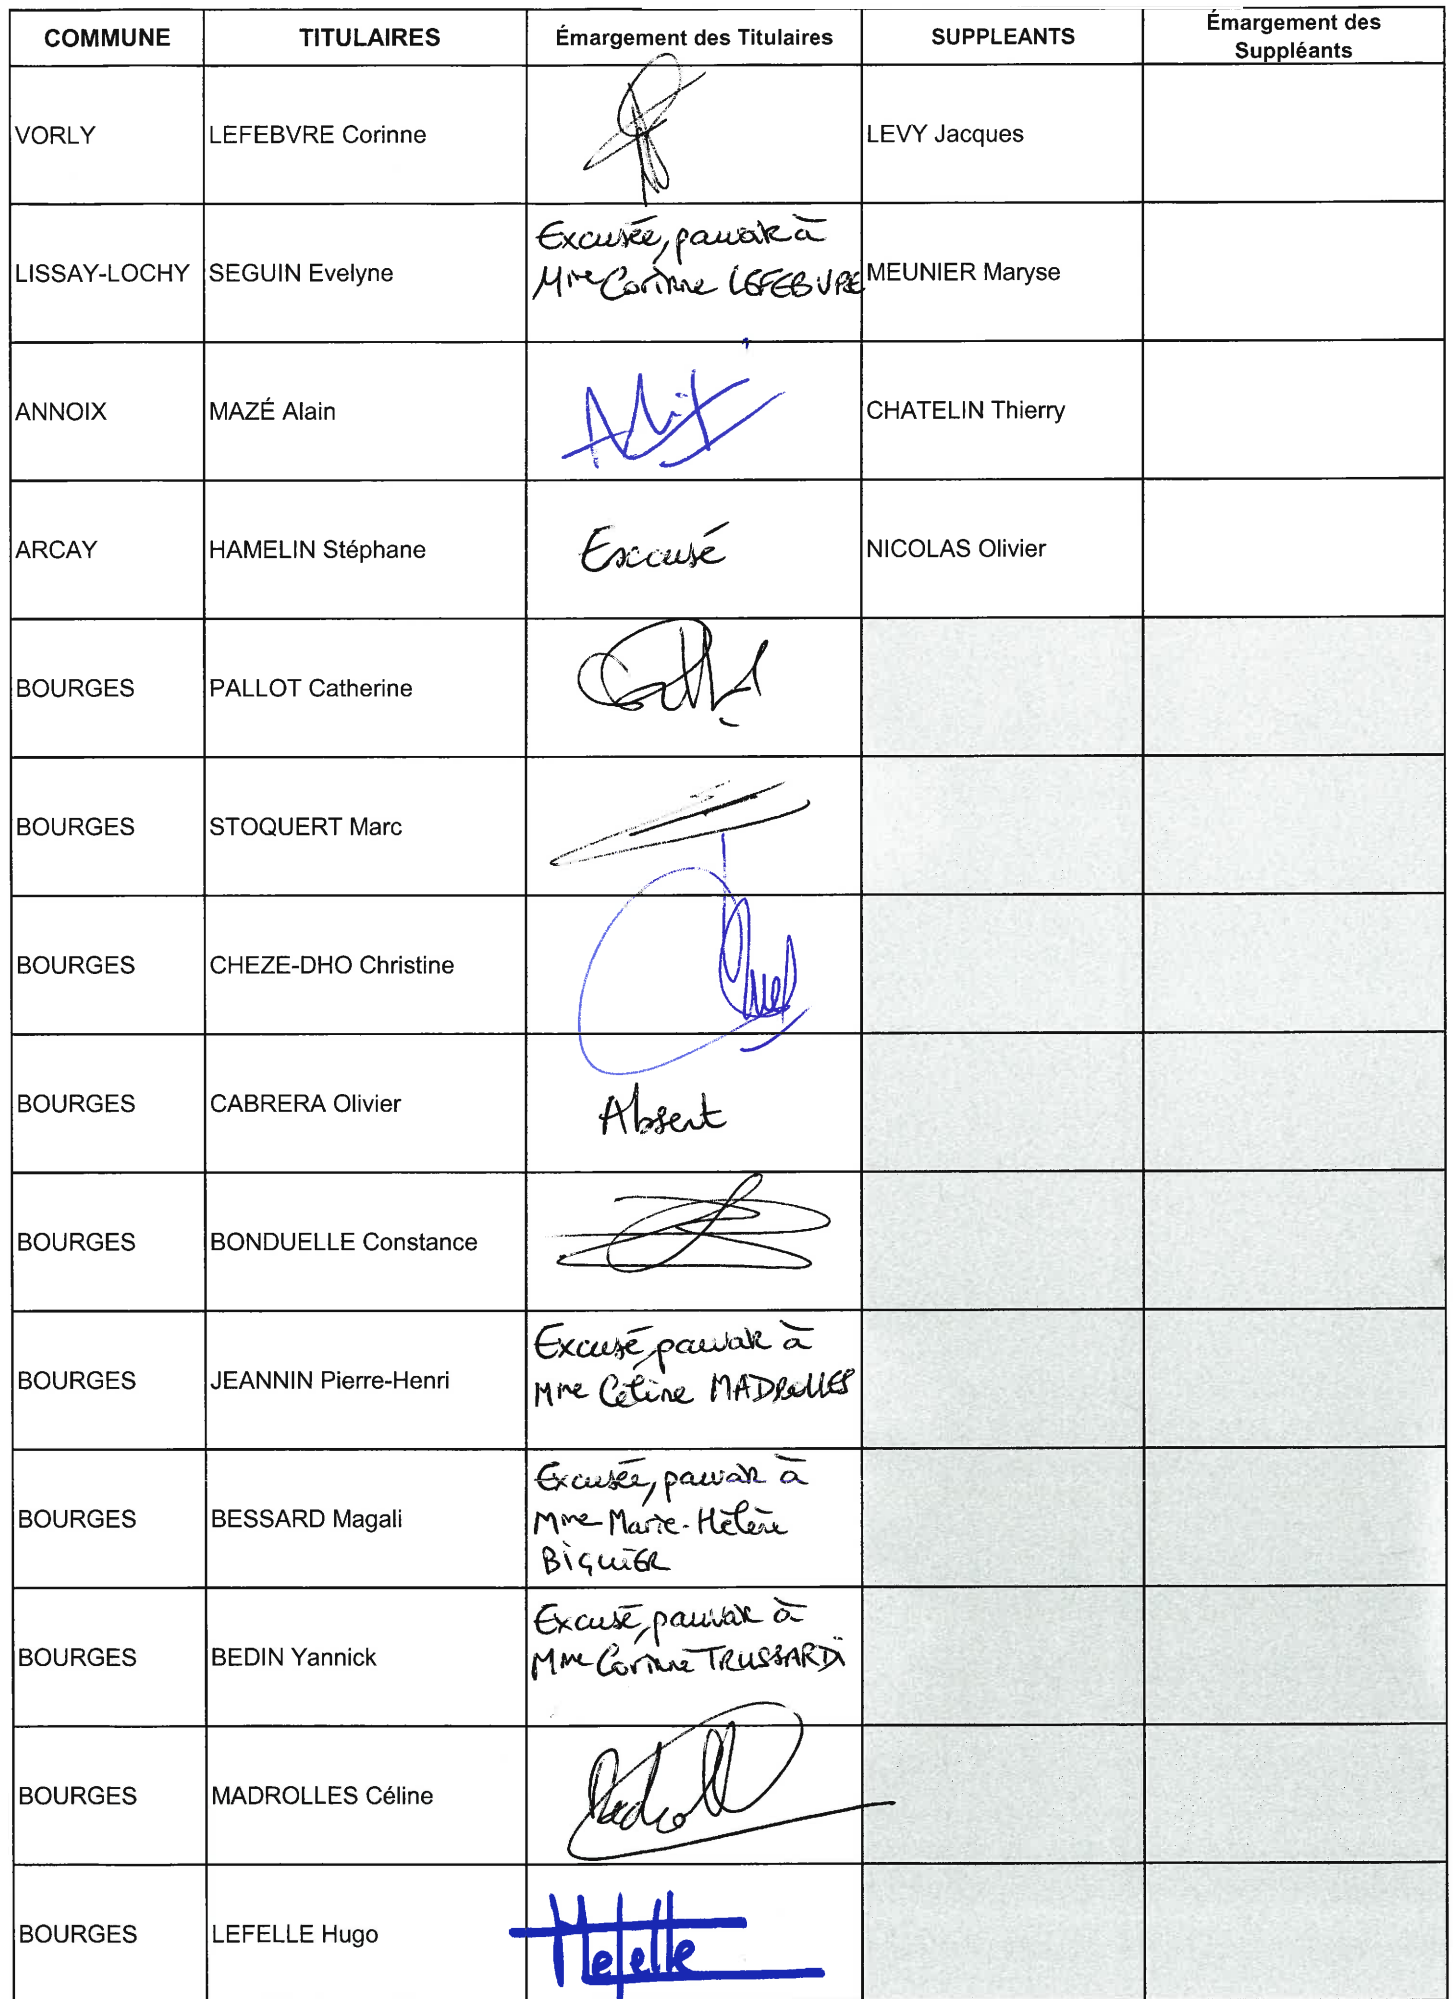 COMMUNE TITULAIRES Émargement des Titulaires SUPPLEANTS Émargement des
Suppléants
VORLY LEFEBVRE Corinne LEVY Jacques
LISSAY-LOCHY SEGUIN Evelyne Excusée, pouvoir à
Mme Corinne LEFEBVRE MEUNIER Maryse
ANNOIX MAZÉ Alain CHATELIN Thierry
ARCAY HAMELIN Stéphane Excusé NICOLAS Olivier
BOURGES PALLOT Catherine
BOURGES STOQUERT Marc
BOURGES CHEZE-DHO Christine
BOURGES CABRERA Olivier Absent
BOURGES BONDUELLE Constance
BOURGES JEANNIN Pierre-Henri Excusé, pouvoir à
Mme Céline MADROLLES
BOURGES BESSARD Magali Excusée, pouvoir à
Mme Marie-Hélène
BIGUIER
BOURGES BEDIN Yannick Excusé, pouvoir à
Mme Corinne TRUSSARDI
BOURGES MADROLLES Céline Madroll
BOURGES LEFELLE Hugo Hefelle